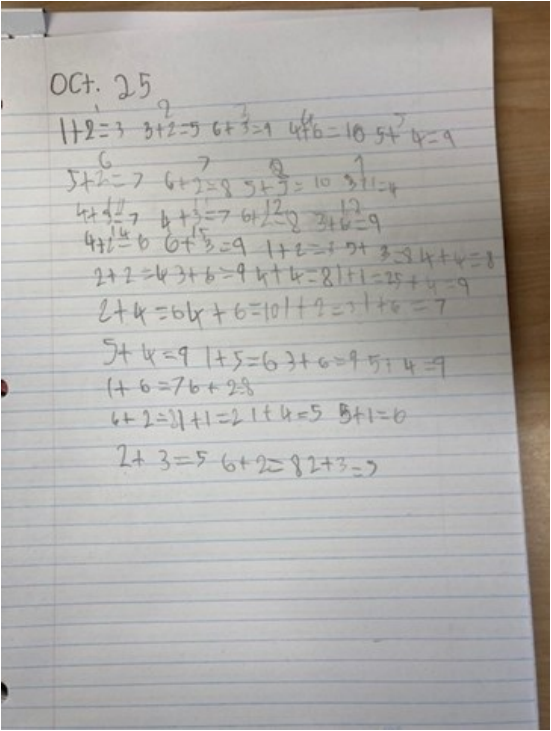 Oct. 25
1 2 3 4 5
1+2=3 3+2=5 6+3=9 4+6=10 5+4=9
6 7 8 9
5+2=7 6+2=8 5+5=10 3+1=4
4+3=7 4+3=7 6+2=8 3+6=9
14 15
4+2=6 6+3=9 1+2=3 5+3=8 4+4=8
2+2=4 3+6=9 4+4=8 1+1=2 5+4=9
2+4=6 4+6=10 1+2=3 1+6=7
5+4=9 1+5=6 3+6=9 5+4=9
1+6=7 6+2=8
6+2=8 1+1=2 1+4=5 5+1=6
2+3=5 6+2=8 2+3=5